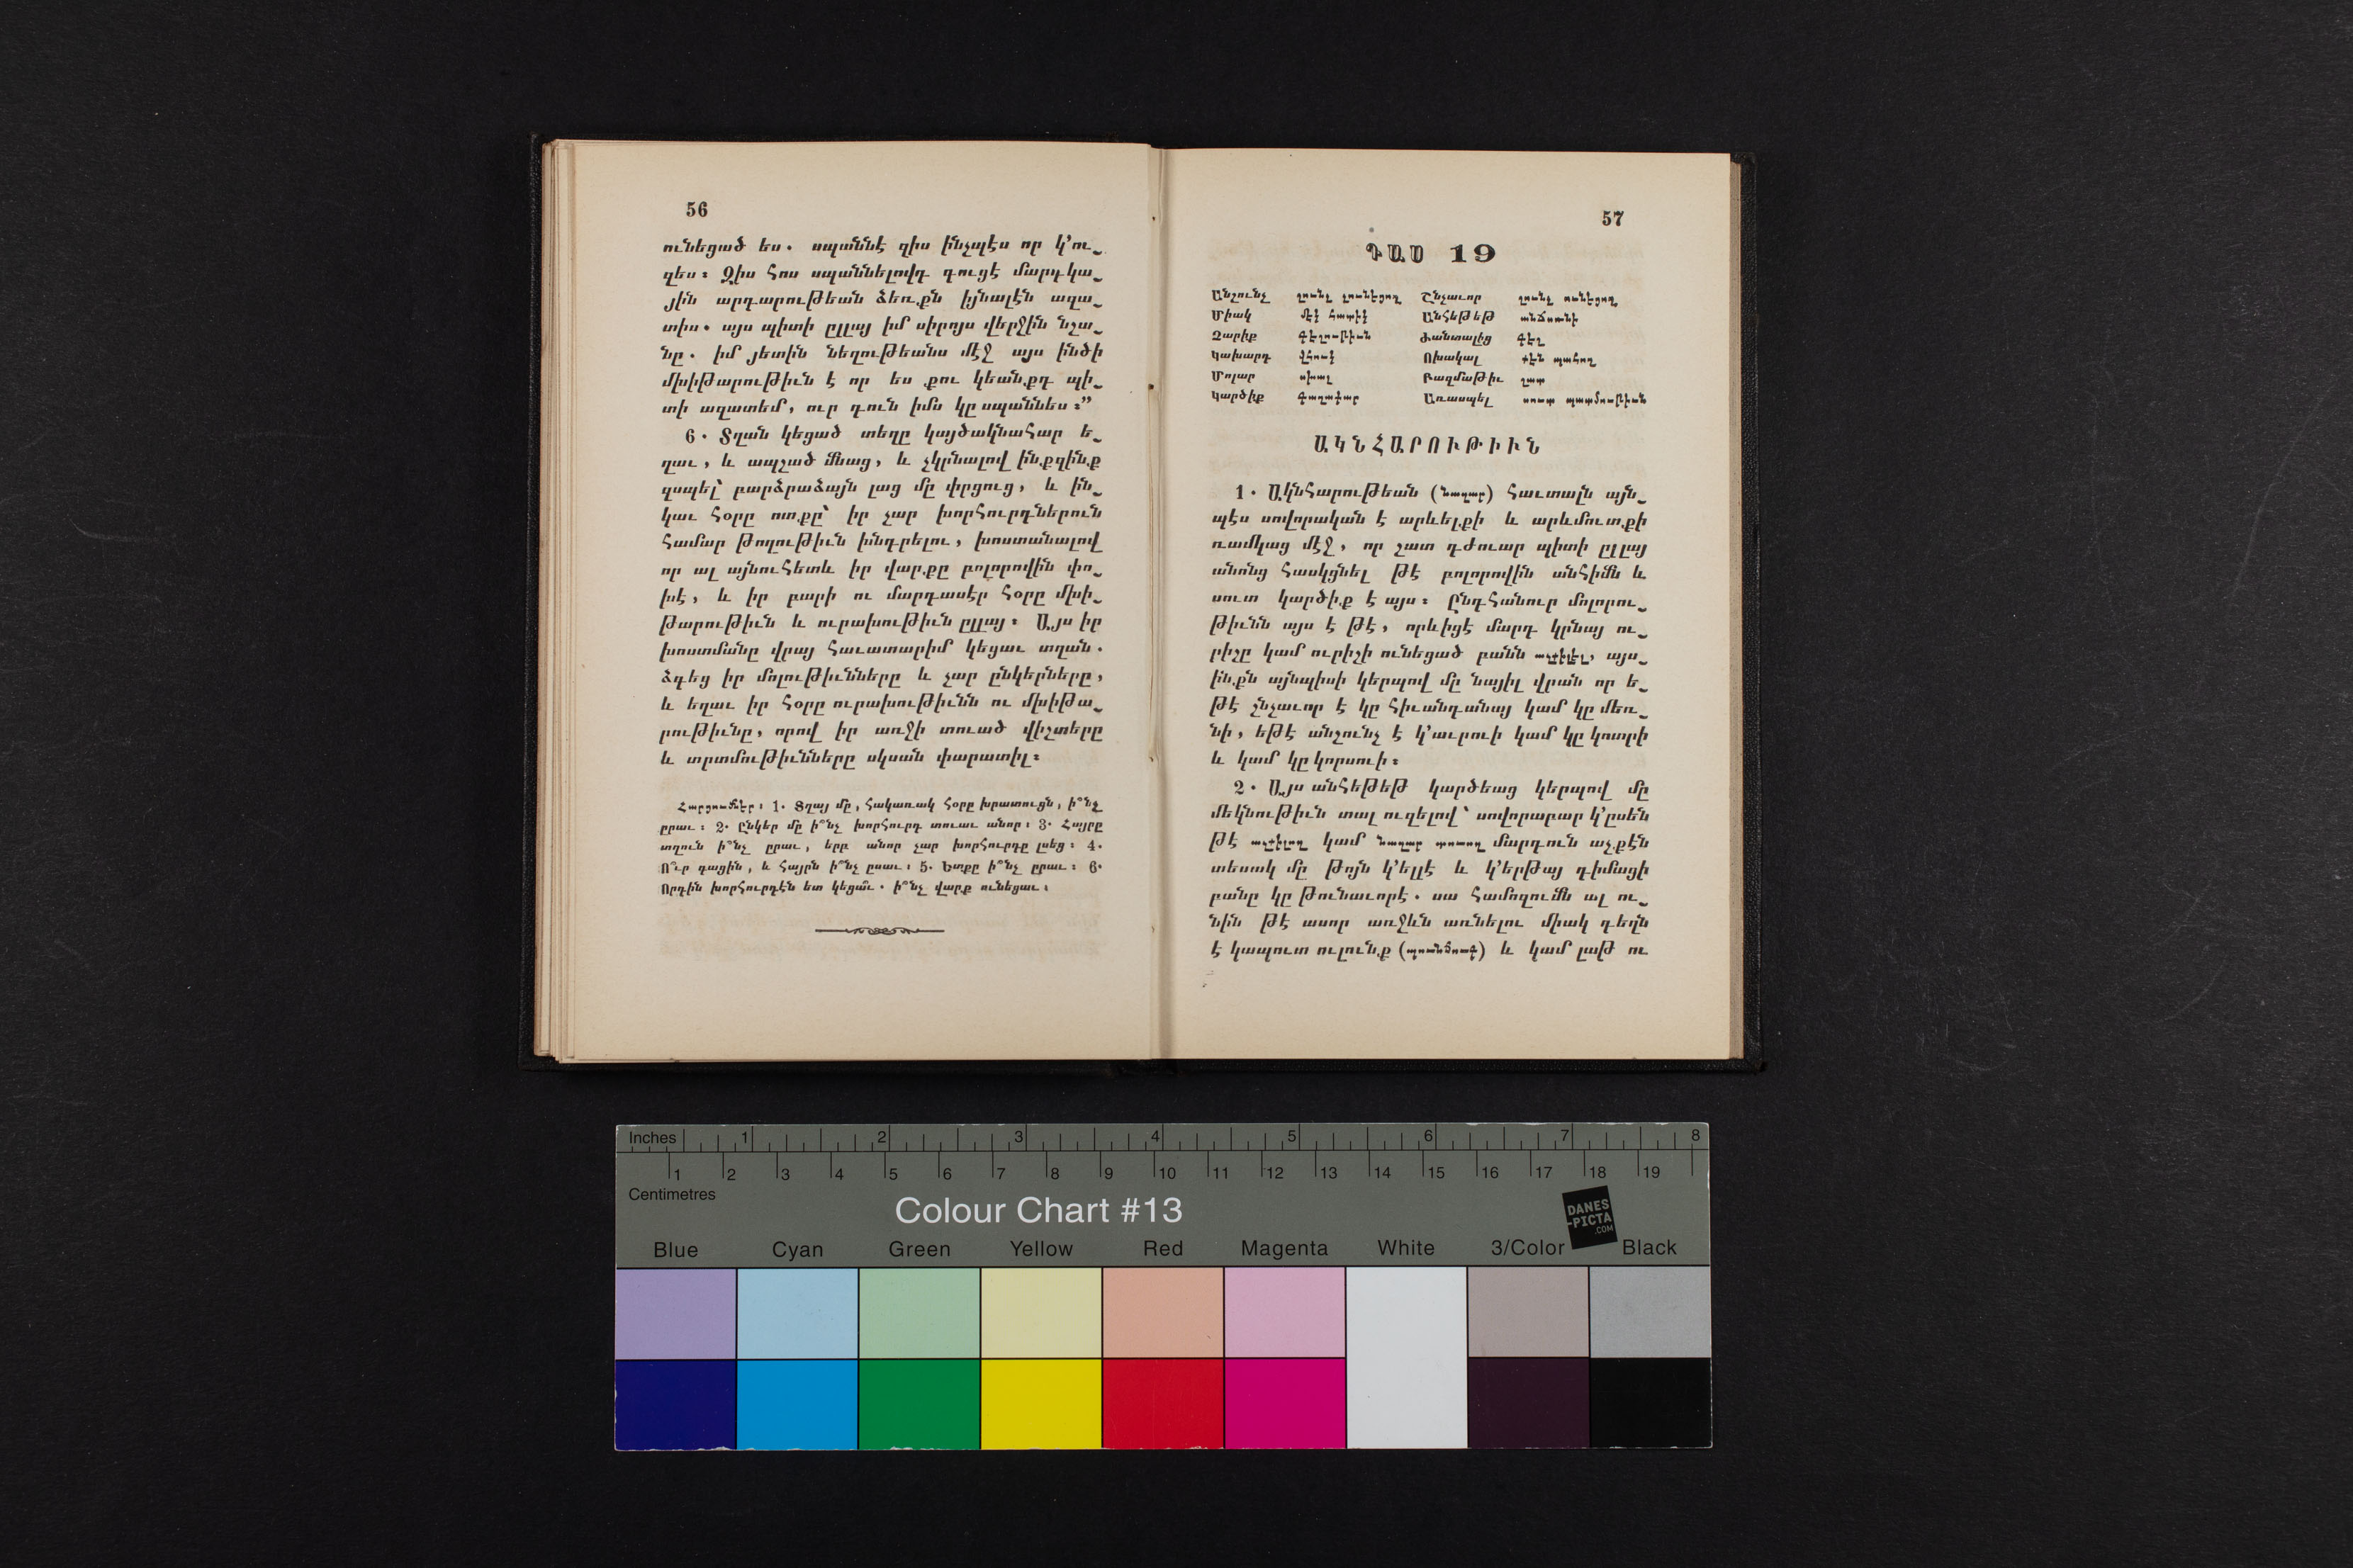 56
ունեցած ես. սպաննէ զիս ինչպէս որ կ’ու֊
զես։ Զիս հոս սպաննելովդ գուցէ մարդկա֊
յին արդարութեան ձեռքն իյնալէն ազա֊
տիս. այս պիտի ըլլայ իմ սիրոյս վերջին նշա֊
նը. իմ յետին նեղութեանս մէջ այս ինծի
մխիթարութիւն է որ ես քու կեանքդ պի֊
տի ազատեմ, ուր դուն իմս կը սպաննես։”
6. Տղան կեցած տեղը կայծակնահար ե֊
ղաւ, և ապշած մնաց, և չկրնալով ինքզինք
զսպել՝ բարձրաձայն լաց մը փրցուց, և ին֊
կաւ հօրը ոտքը՝ իր չար խորհուրդներուն
համար թողութիւն խնդրելու, խոստանալով
որ ալ այնուհետև իր վարքը բոլորովին փո֊
խէ, և իր բարի ու մարդասէր հօրը մխի֊
թարութիւն և ուրախութիւն ըլլայ։ Այս իր
խոստմանը վրայ հաւատարիմ կեցաւ տղան.
ձգեց իր մոլութիւնները և չար ընկերները,
և եղաւ իր հօրը ուրախութիւնն ու մխիթա֊
րութիւնը, որով իր առջի տուած վիշտերը
և տրտմութիւնները սկսան փարատիլ։
Հարցումներ։ 1. Տղայ մը, հակառակ հօրը խրատուցն, ի՞նչ
ըրաւ։ 2. Ընկեր մը ի՞նչ խորհուրդ տուաւ անոր։ 3. Հայրը
տղուն ի՞նչ ըրաւ, երբ անոր չար խորհուրդը լսեց։ 4.
Ո՞ւր գացին, և հայրն ի՞նչ ըսաւ։ 5. Ետքը ի՞նչ ըրաւ։ 6.
Որդին խորհուրդէն ետ կեցա՞ւ. ի՞նչ վարք ունեցաւ։
57
ԴԱՍ 19
Անշունչ շունչ չունեցող Շնչաւոր շունչ ունեցող
Միակ մէկ հատիկ Անհեթեթ անճոռնի
Զարիք գէշութիւն Ժանտալից գէշ
Կախարդ վհուկ Ոխակալ քէն պահող
Մոլար սխալ Բազմաթիւ շատ
Կարծիք գաղափար Առասպել սուտ պատմութիւն
ԱԿՆՀԱՐՈՒԹԻՒՆ
1. Ակնհարութեան (նազար) հաւտալն այն֊
պէս սովորական է արևելքի և արևմուտքի
ռամկաց մէջ, որ շատ դժուար պիտի ըլլայ
անոնց հասկցնել թէ բոլորովին անհիմն և
սուտ կարծիք է այս։ Ընդհանուր մոլորու֊
թիւնն այս է թէ, որևիցէ մարդ կրնայ ու֊
րիշը կամ ուրիշի ունեցած բանն աչքիլել, այս֊
ինքն այնպիսի կերպով մը նայիլ վրան որ ե֊
թէ շնչաւոր է կը հիւանդանայ կամ կը մեռ֊
նի, եթէ անշունչ է կ’աւրուի կամ կը կոտրի
և կամ կը կորսուի։
2. Այս անհեթեթ կարծեաց կերպով մը
մեկնութիւն տալ ուզելով՝ սովորաբար կ’ըսեն
թէ աչքիլող կամ նազար տուող մարդուն աչքէն
տեսակ մը թոյն կ’ելլէ և կ’երթայ դիմացի
բանը կը թունաւորէ. սա համոզումն ալ ու֊
նին թէ ասոր առջևն առնելու միակ դեղն
է կապուտ ուլունք (պոնճուգ) և կամ լաթ ու
Inches 1 2 3 4 5 6 7 8
1 2 3 4 5 6 7 8 9 10 11 12 13 14 15 16 17 18 19
Centimetres
Colour Chart #13
DANES
-PICTA
.COM
Blue Cyan Green Yellow Red Magenta White 3/Color Black